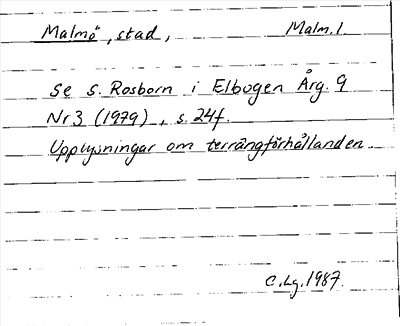 Malmö, stad, Malm. 1
Se S. Rosborn i Elbogen Årg. 9
Nr 3 (1979), s. 24f.
Upplysningar om terrängförhållanden
C. Lg. 1987.